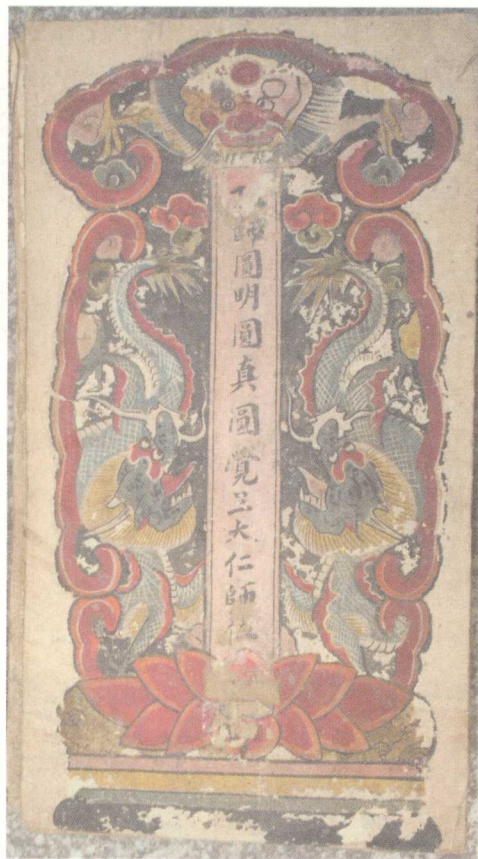 師圓明圓真圓覺三大仁師位